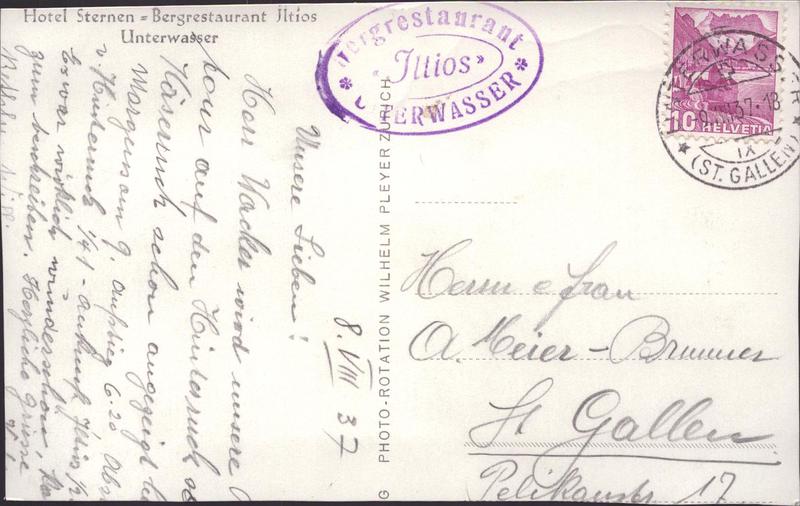 Hotel Sternen = Bergrestaurant Iltios
Unterwasser
Bergrestaurant
« Iltios »
UNTERWASSER
UNTERWASSER
37-18
IX
(ST. GALLEN)
10 HELVETIA
8. VIII 37
Unsere Lieben!
Herr Wacker wird unsere
tour auf den Hinterruck
Käserruck schon angezeigt
Morgens om 9. Aufstieg 6.20
v. Hinterruck 1/41 - Ankunft Iltios 1/2
Es war wirklich wunderschön,
zum beschreiben. Herzliche Grüsse
G PHOTO-ROTATION WILHELM PLEYER ZÜRICH
Herrn & Frau
A. Meier-Brunner
St Gallen
Pelikanstr 17